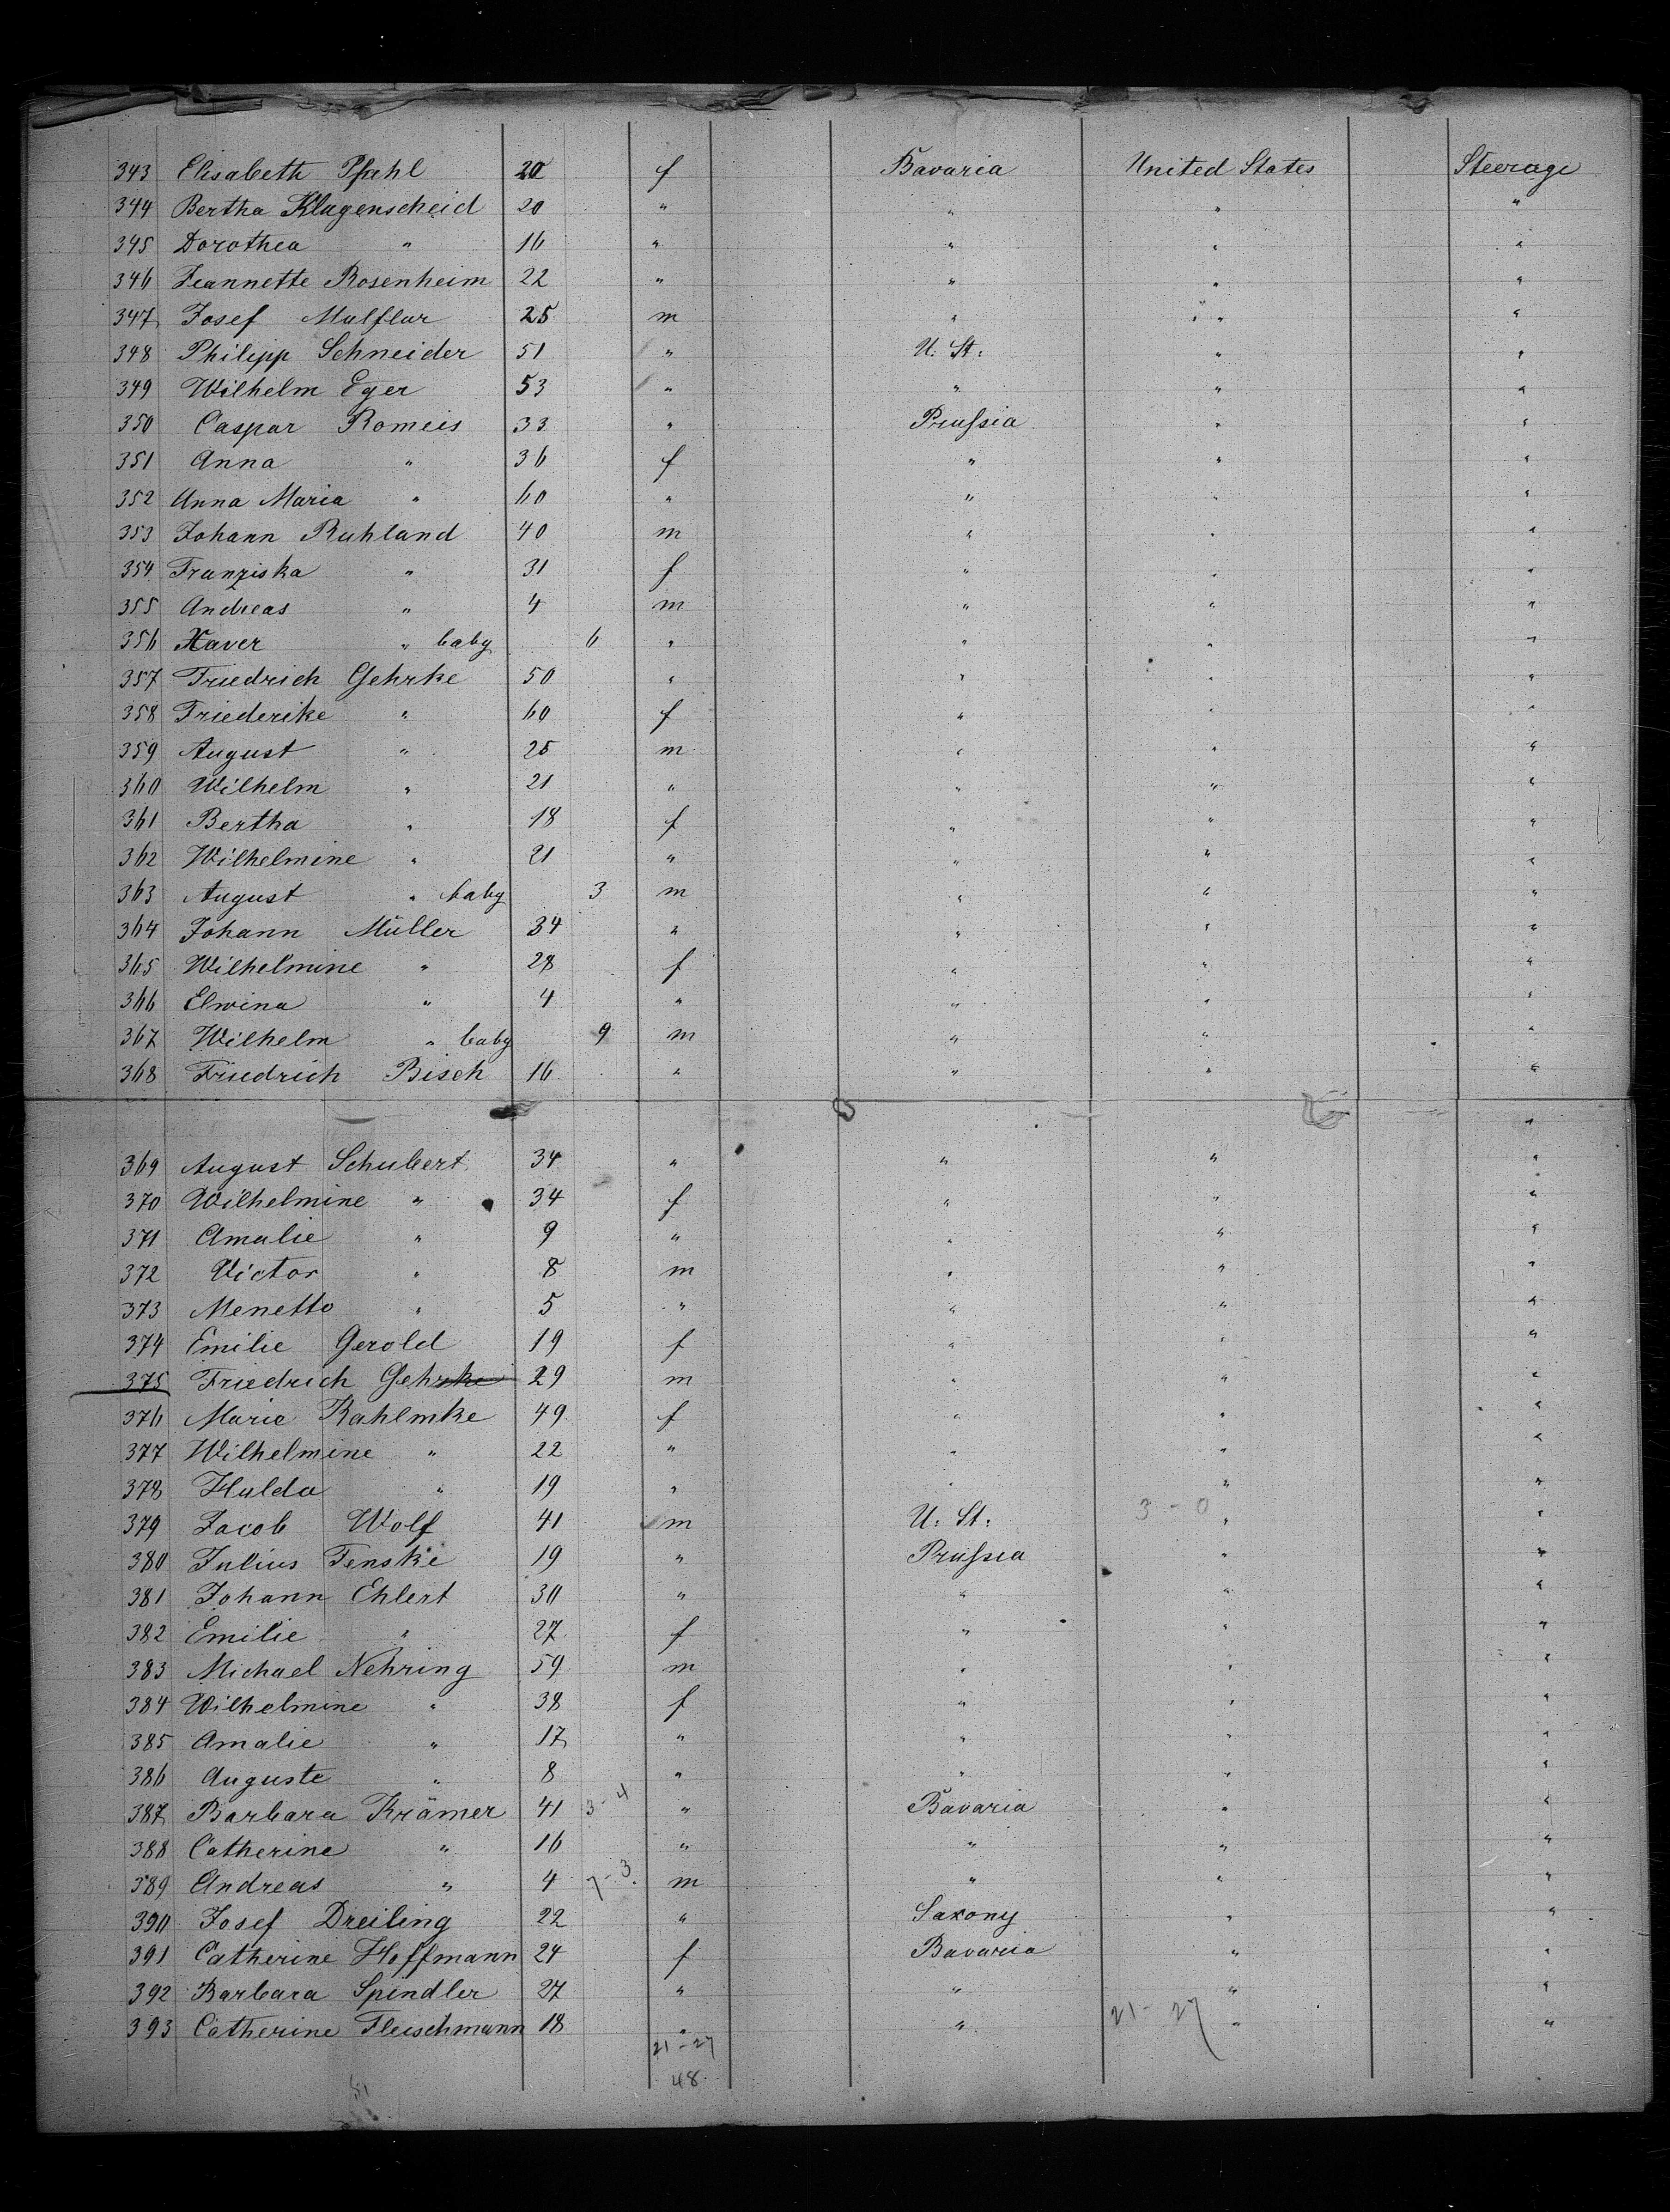 343 Elisabeth Pfahl 20 f Bavaria United States Steerage
344 Bertha Klagenscheid 20 " " " "
345 Dorothea " 16 " " " "
346 Jeannette Rosenheim 22 " " " "
347 Josef Mulflur 25 m " " "
348 Philipp Schneider 51 " U. St. " "
349 Wilhelm Eger 53 " " " "
350 Caspar Romeis 33 " Prussia " "
351 Anna " 36 f " " "
352 Anna Maria " 60 " " " "
353 Johann Ruhland 40 m " " "
354 Franziska " 31 f " " "
355 Andreas " 4 m " " "
356 Xaver " baby 6 " " " "
357 Friedrich Gehrke 50 " " " "
358 Friederike " 60 f " " "
359 August " 25 m " " "
360 Wilhelm " 21 " " " "
361 Bertha " 18 f " " "
362 Wilhelmine " 21 " " " "
363 August " baby 3 m " " "
364 Johann Müller 34 " " " "
365 Wilhelmine " 28 f " " "
366 Elwina " 4 " " " "
367 Wilhelm " baby 9 m " " "
368 Friedrich Bisch 16 " " " "
"
369 August Schubert 34 " " " "
370 Wilhelmine " 34 f " " "
371 Amalie " 9 " " " "
372 Victor " 8 m " " "
373 Menetto " 5 " " " "
374 Emilie Gerold 19 f " " "
375 Friedrich Gehrke 29 m " " "
376 Marie Rahlmke 49 f " " "
377 Wilhelmine " 22 " " " "
378 Hulda " 19 " " " "
379 Jacob Wolf 41 m U. St. 3-0 " "
380 Julius Fenske 19 " Prussia " "
381 Johann Ehlert 30 " " " "
382 Emilie " 27 f " " "
383 Michael Nehring 59 m " " "
384 Wilhelmine " 38 f " " "
385 Amalie " 17 " " " "
386 Auguste " 8 " " " "
387 Barbara Krämer 41 3-4 " Bavaria " "
388 Catherine " 16 " " " "
389 Andreas " 4 7-3. m " " "
390 Josef Dreiling 22 " Saxony " "
391 Catherine Hoffmann 24 f Bavaria " "
392 Barbara Spindler 27 " " " "
393 Catherine Fleischmann 18 " " 21-27 " "
21-27
48